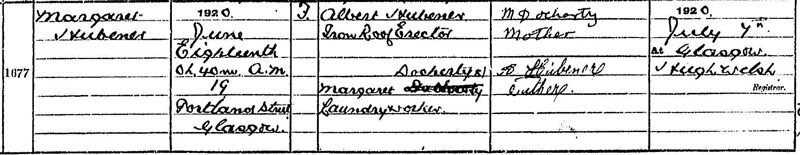 1677
Margaret
Hubener
1920.
June
Eighteenth
0h. 40m. A.M.
19
Portland Street
Glasgow.
F.
Albert Hubener
Iron Roof Erector
Docherty
Margaret Docharty
Laundry worker.
M Docharty
Mother
A Hubener
1920.
July 7th
At Glasgow.
Hugh Welsh
Registrar.